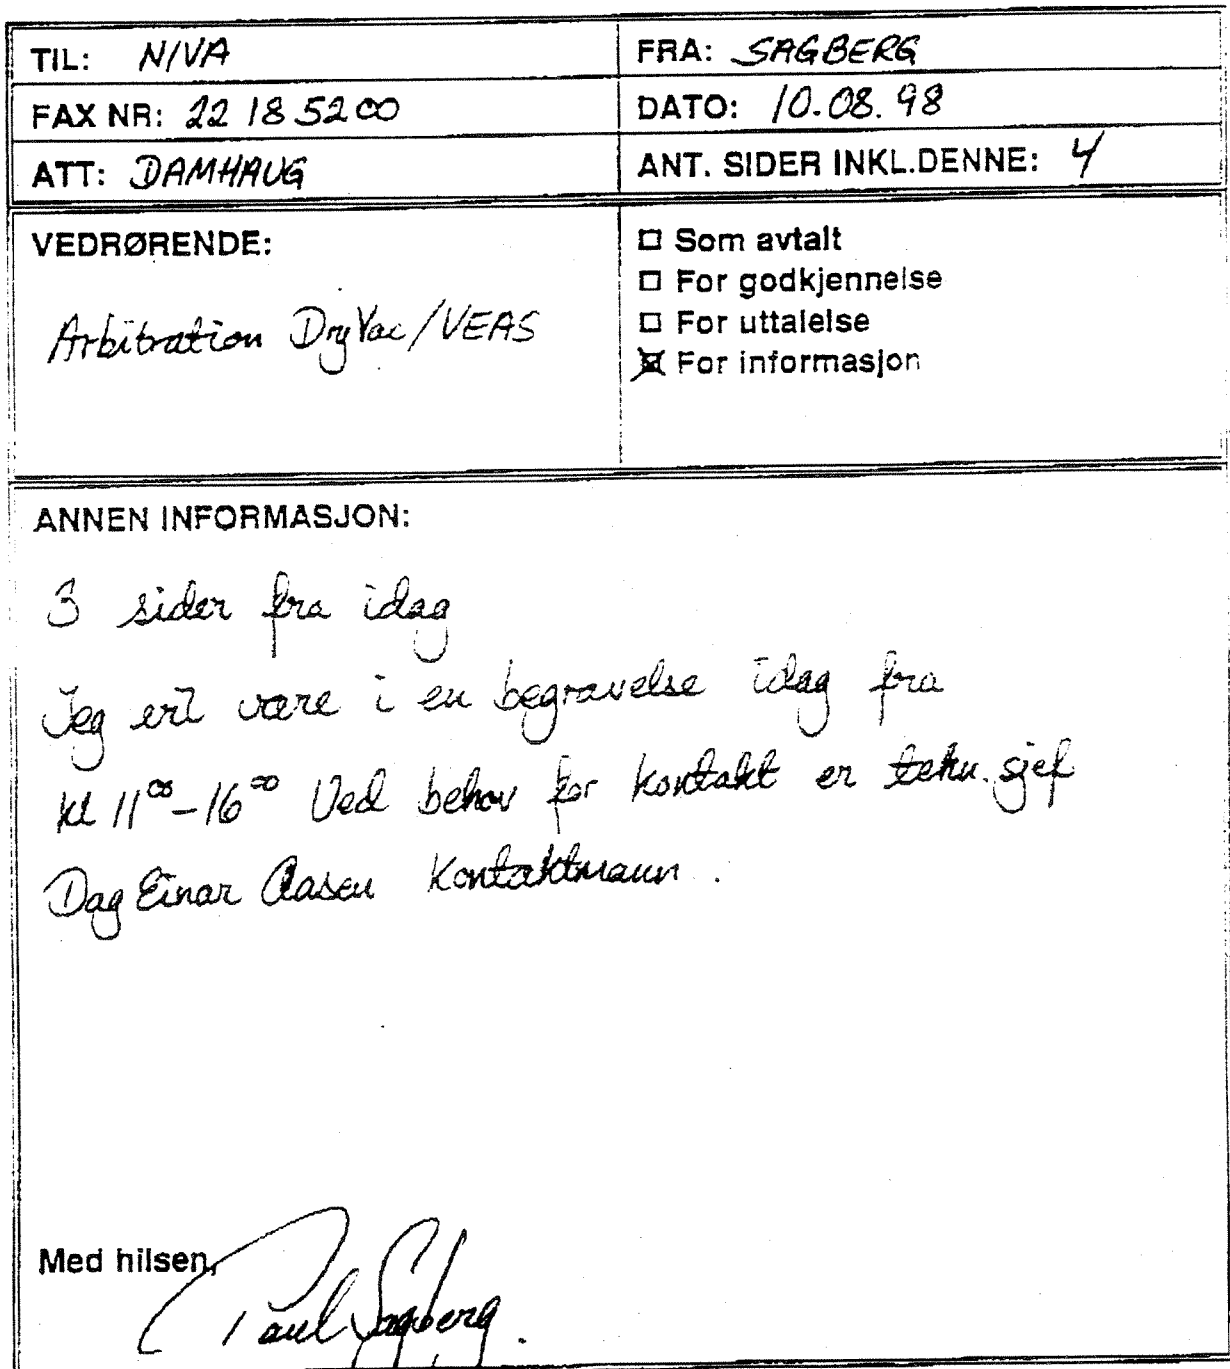 TIL: NIVA
FRA: SAGBERG
FAX NR: 22 18 52 00
DATO: 10.08.98
ATT: DAMHAUG
ANT. SIDER INKL.DENNE: 4
VEDRØRENDE:
Arbitration DryVac/VEAS
Som avtalt
For godkjennelse
For uttalelse
For informasjon
ANNEN INFORMASJON:
3 sider fra idag
Jeg vil være i en begravelse idag fra
kl 11⁰⁰-16⁰⁰ Ved behov for kontakt er tekn. sjef
Dag Einar Aasen Kontaktmann.
Med hilsen,
Paul Sagberg.